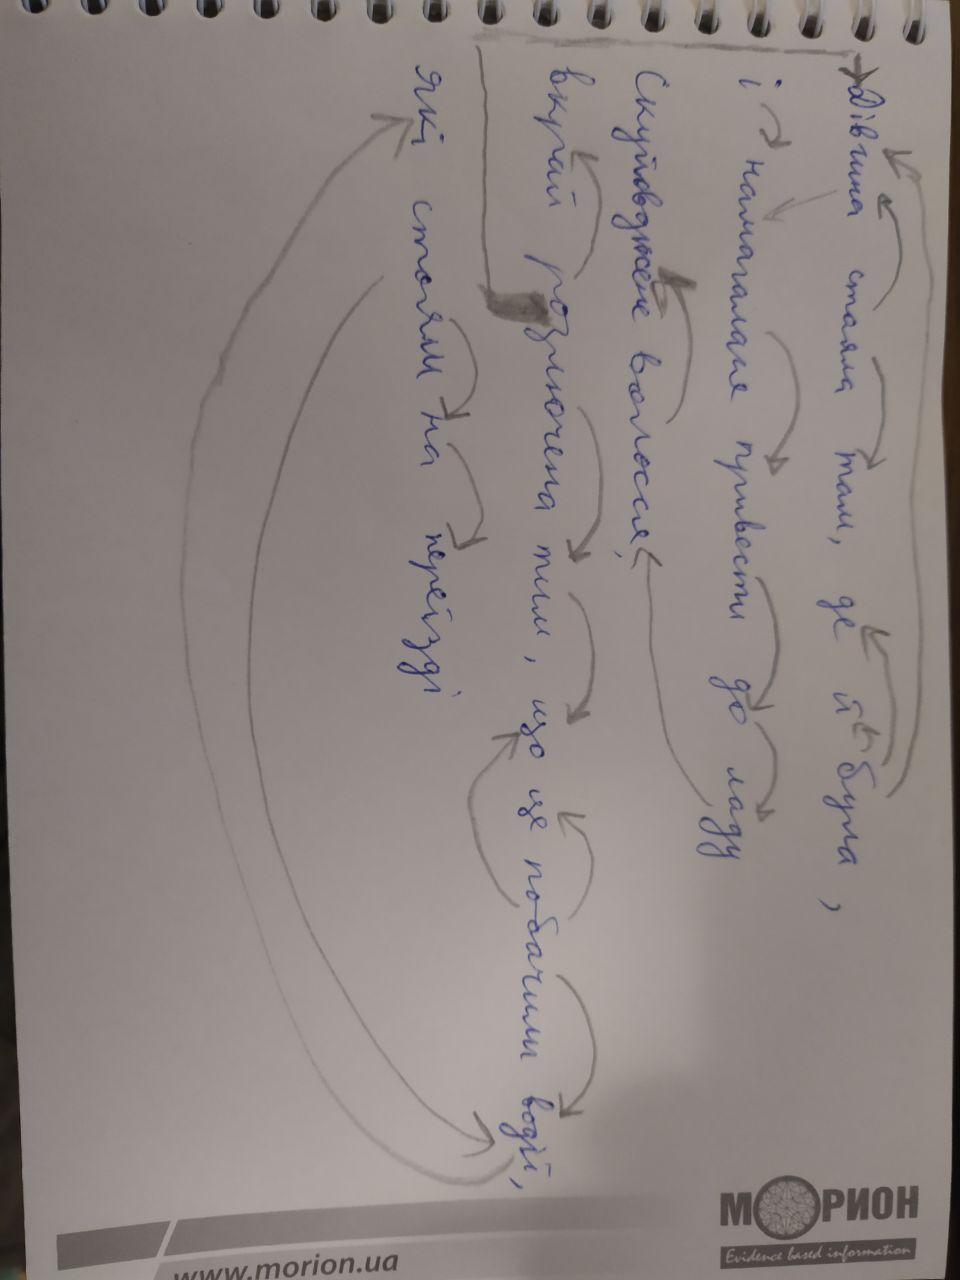 Дівчина стояла там, де й була,
і намагалася привести до ладу
Скуйовджене волосся,
вкрай розлючена тим, що це побачили водії,
які стояли на переїзді
МОРИОН
Evidence based information
www.morion.ua